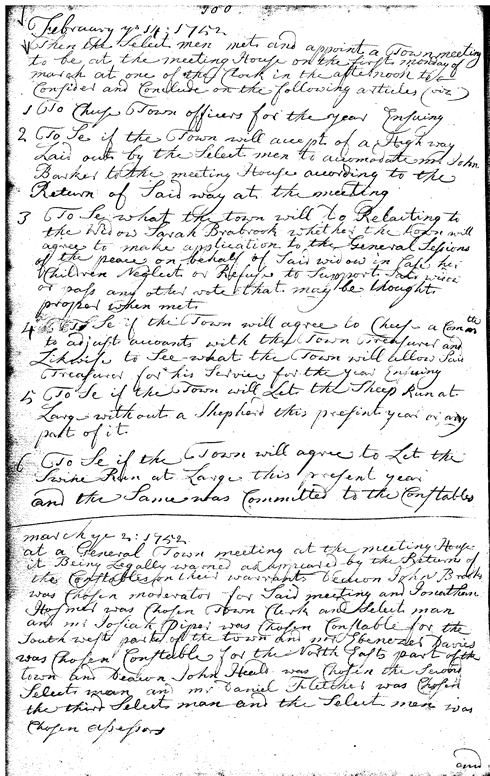 100
February ye 14: 1752
Then the Select men mett and appoint a Town meeting
to be at the meeting House on the first monday of
march at one of the Clock in the afternoon to
Consider and Conclude on the following articles (viz)
1 To Chuse Town officers for the year Ensuing
2 To Se if the Town will accept of a High way
Laid out by the Select men to accomodate mr John
Barker to the meeting House according to the
Return of Said way at the meeting
3 To Se what the town will Do Relaiting to
the widow Sarah Brabrook whether the town will
agree to make application to the General Sessions
of the peace on behalf of Said widow in Case her
Children Neglect or Refuse to Support Said
or pass any other vote that may be thought
proper when mett
4 To Se if the Town will agree to Chuse a Comtte
to adjust accounts with the Town Treasurer and
Likwise to See what the Town will allow Said
Treasurer for his Service for the year Ensuing
5 To Se if the Town will Lett the Sheep Run at
Large without a Shepherd this present year or any
part of it
6 To Se if the Town will agree to Let the
Swine Run at Large this present year
and the Same was Committed to the Constables
march ye 2: 1752
at a General Town meeting at the meeting House
it Being Legally warned as appeared by the Returns of
the Constables on their warrants Deacon John Brooks
was Chosen moderator for Said meeting and Jonathan
Hosmer was Chosen Town Clerk and Select man
and mr Josiah Piper was Chosen Constable for the
South west part of the town and mr Ebenezer Davies
was Chosen Constable for the North East part of the
town and Deacon John Heald was Chosen the Second
Select man and mr Daniel Fletcher was Chosen
the third Select man and the Select men was
Chosen assessors
and